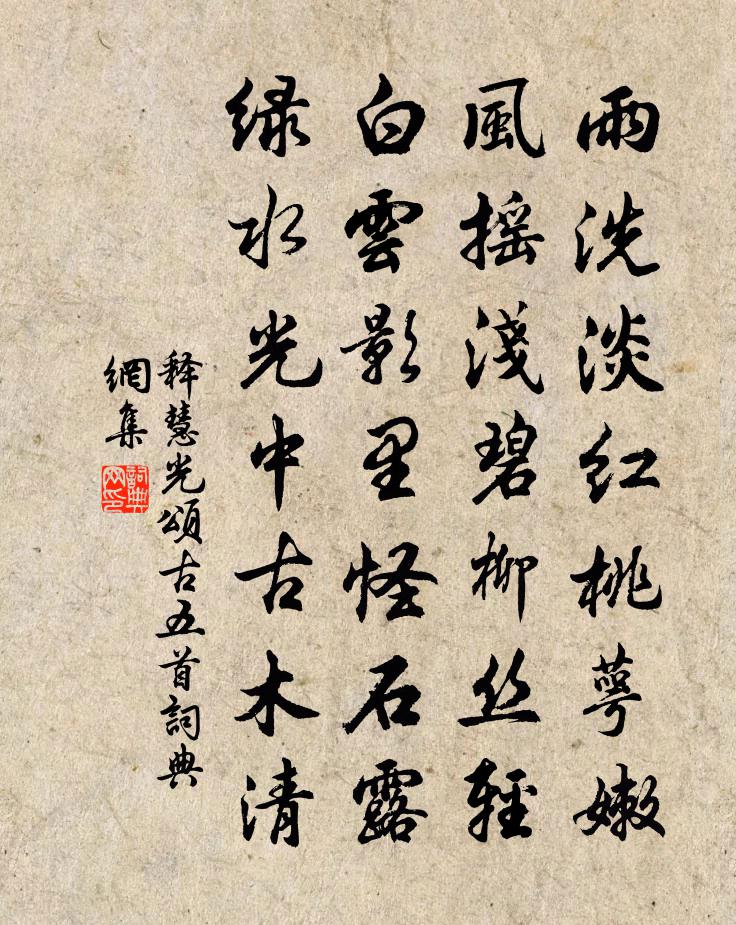 雨洗淡红桃萼嫩
風摇淺碧柳丝輕
白雲影里怪石露
绿水光中古木清
释慧光頌古五首詞典
網集
詞典
网印